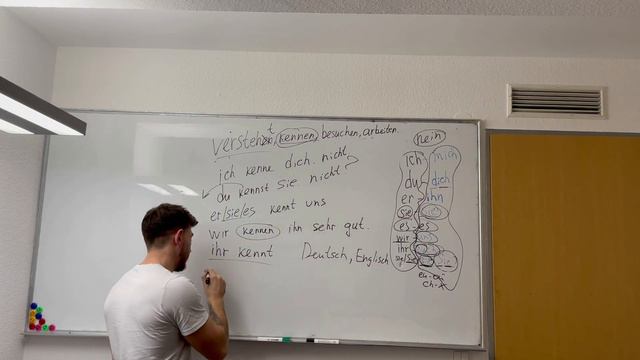 verstehen, kennen, besuchen, arbeiten.
t
nein
ich kenne dich nicht
du kennst sie nicht
er/sie/es kennt uns
wir kennen ihn sehr gut.
ihr kennt Deutsch, Englisch
ich mich
du dich
er ihn
sie
es es
wir
ihr
sie/Sie